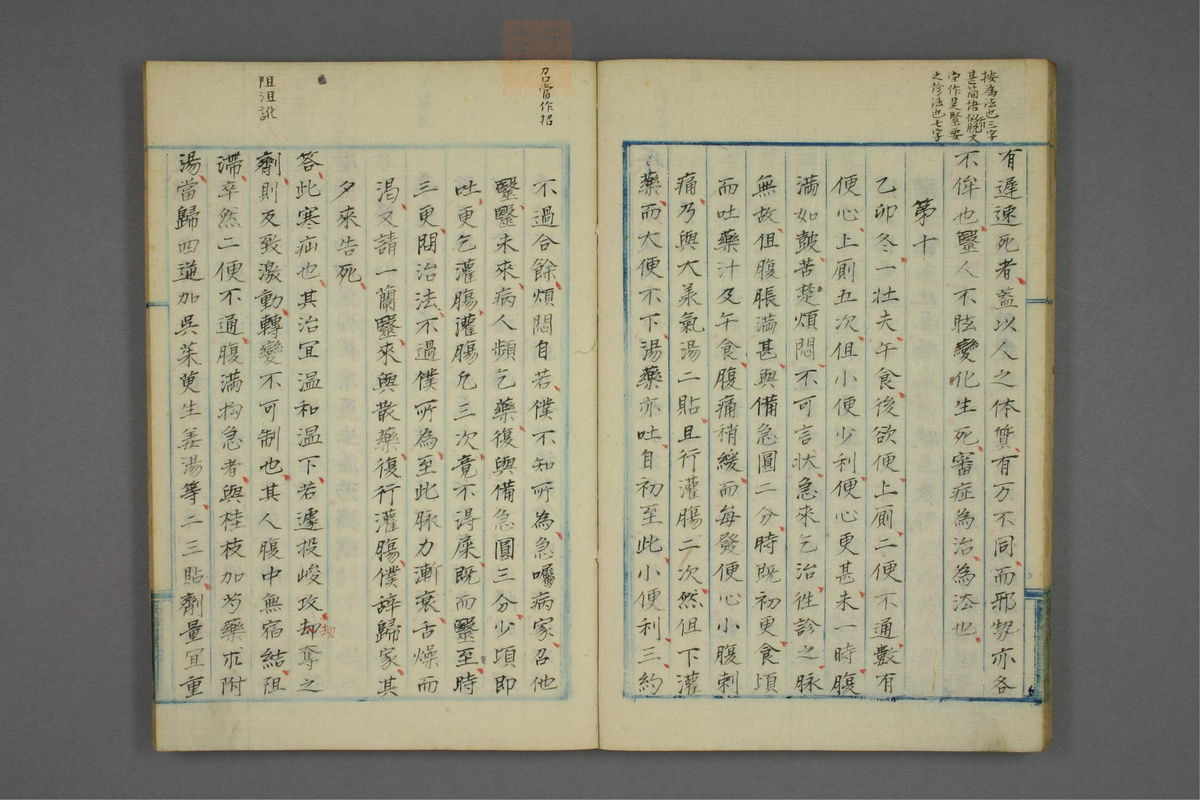 按為法也三字
甚簡語似脱文
宜作是緊要
之診法也七字
有遲速死者蓋以人之体質有万不同而邪勢亦各
不侔也醫人不眩變化生死審症為治為法也
第十
乙卯冬一壮夫午食後欲便上厠二便不通數有
便心上厠五次但小便少利便心更甚未一時腹
満如皷苦楚煩悶不可言状急來乞治徃診之脉
無故但腹脹満甚與備急圓二分時既初更食頃
而吐藥汁及午食腹痛稍緩而每發便心小腹刺
痛乃與大羕氣湯二貼且行灌腸二次然但下灌
藥而大便不下湯藥亦吐自初至此小便利三約
不過合餘煩悶自若僕不知所為急囑病家召他
醫醫未來病人頻乞藥復與備急圓三分少頃即
吐更乞灌腸灌腸凡三次竟不得屎既而醫至時
三更問治法不過僕所為至此脉力漸衰舌燥而
渇又請一蘭醫來與散藥復行灌腸僕辞歸家其
夕來告死
答此寒疝也其治宜温和温下若遽投峻攻却奪之
劫
劑則反致激動轉變不可制也其人腹中無宿結阻
滯卒然二便不通腹満拘急者與桂枝加芍藥朮附
湯當歸四逆加呉茱萸生姜湯等二三貼劑量宜重
召當作招
阻沮訛